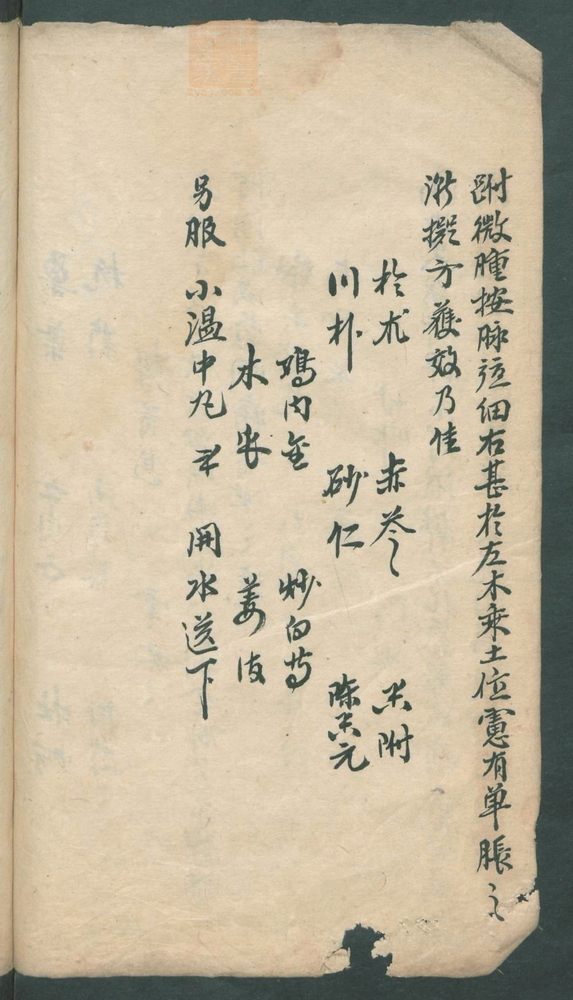 跗微腫按脉弦細右甚於左木乘土位慮有单脹之
漸擬方獲效乃佳
於朮 赤苓 米附
川朴 砂仁 陳米元
鸡内金 炒白芍
木 姜皮
另服 小温中丸 開水送下